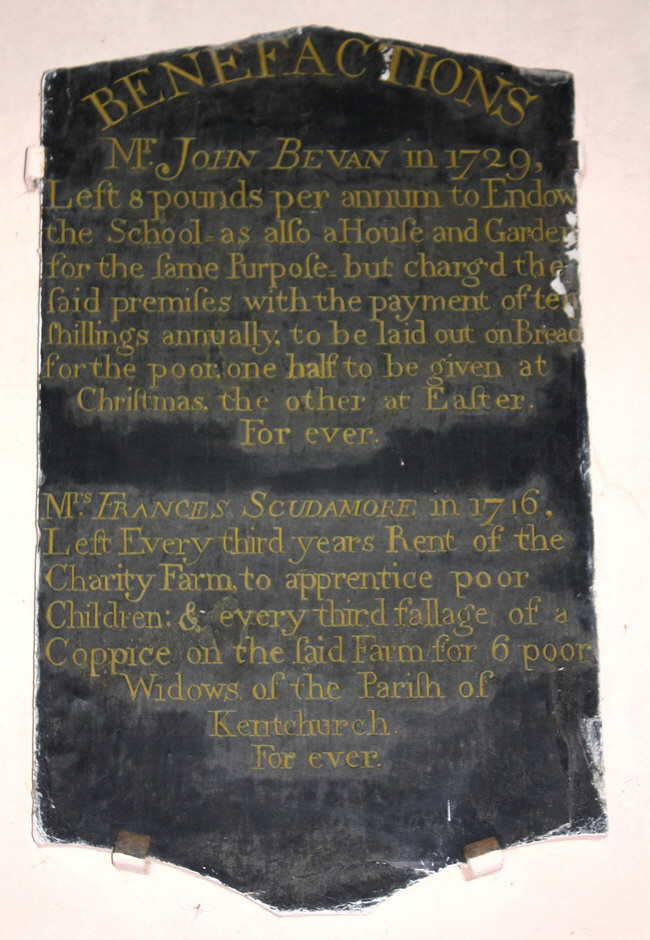 BENEFACTIONS
Mr. JOHN BEVAN in 1729,
Left 8 pounds per annum to Endow
the School= as alſo a Houſe and Garden
for the ſame Purpoſe= but charg'd the
ſaid premiſes with the payment of ten
ſhillings annually, to be laid out on Bread
for the poor, one half to be given at
Chriſtmas, the other at Eaſter.
For ever.
Mrs. FRANCES SCUDAMORE in 1716,
Left Every third years Rent of the
Charity Farm, to apprentice poor
Children: & every third fallage of a
Coppice on the ſaid Farm for 6 poor
Widows of the Pariſh of
Kentchurch.
For ever.